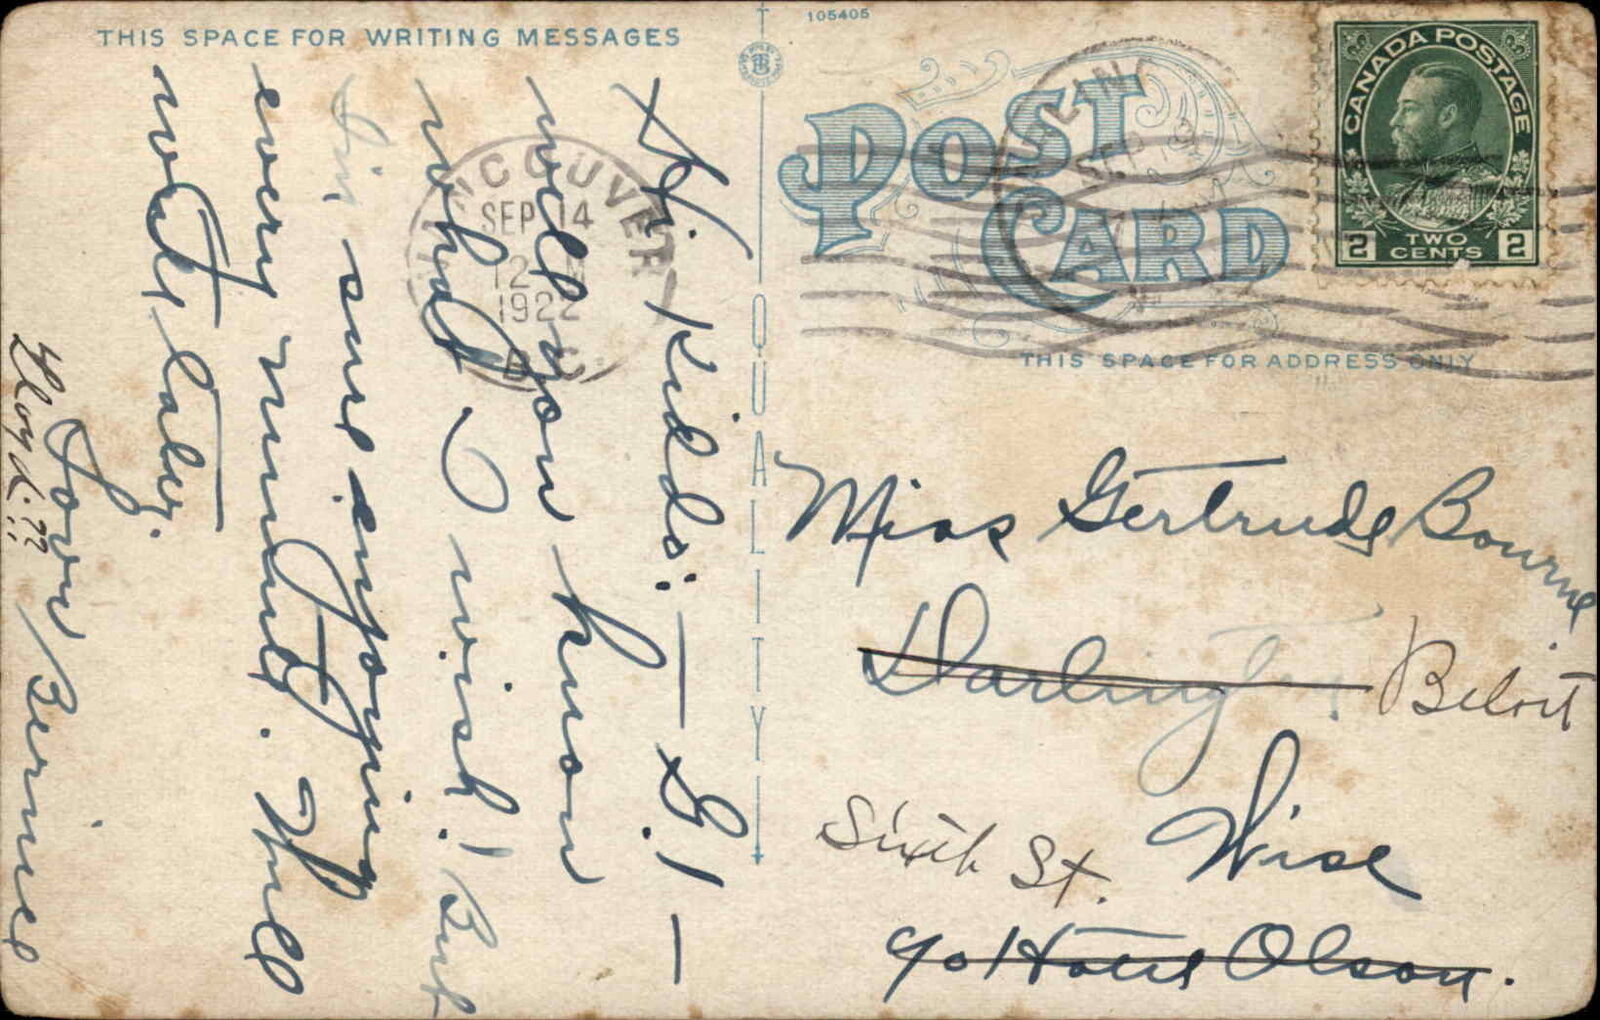 THIS SPACE FOR WRITING MESSAGES
105405
POST
CARD
QUALITY
THIS SPACE FOR ADDRESS ONLY
CANADA POSTAGE
2 TWO CENTS 2
VANCOUVER
SEP 14
12 M
1922
B.C.
SEP
Hi. Kiddo: — S.! —
well you know
what I wish! But
I'm sure enjoying
every minute. Will
write later.
Love Bernice
Floyd.??
Miss Gertrude Bourne
Darlington Beloit
Sixth St. Wisc
c/o Hotel Olson.